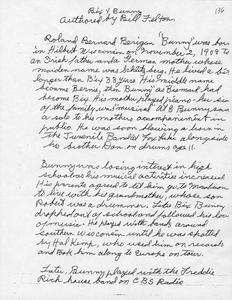 196
Bix & Bunny
Authored by Bill Felton
Roland Bernard Berigan "Bunny" was born
in Hilbert Wisconsin on November 2, 1908 to
an Irish father and a German mother whose
maiden name was Schlitzberg. He lived a bit
longer than Bix 33 years. His middle name
became Bernie, then Bunny as Bismark had
become Bix. His mother played piano. He was
of the family was musical. At 8 Bunny sang
a solo to his mothers accompaniment in
public. He was soon playing a horn in
the Juvenile Band alongside
his brother Don on drums age 11.
Bunny was losing interest in high
school as his musical activities increased
His parents agreed to let him go to Madison
to live with his grandmother, whose son
Robert was a drummer. Like Bix Bunny
dropped out of school and followed his love
of music. He played with bands around
southern Wisconsin until he was spotted
by Hal Kemp, who used him on records
and took him along to Europe on tour.
Later, Bunny played with the Freddie
Rich house band on CBS Radio